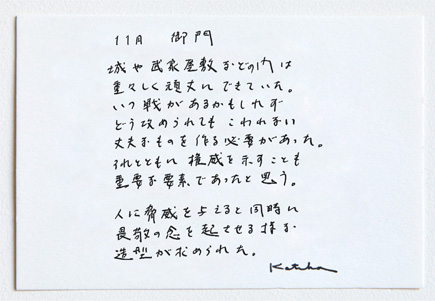 11月 御門
城や武家屋敷などの門は
重々しく頑丈にできていた。
いつ戦があるかもしれず
どう攻められても こわれない
丈夫なものを作る必要があった。
それとともに 権威を示すことも
重要な要素であったと思う。
人に脅威を与えると同時に
畏敬の念を起させる様な
造型が求められた。